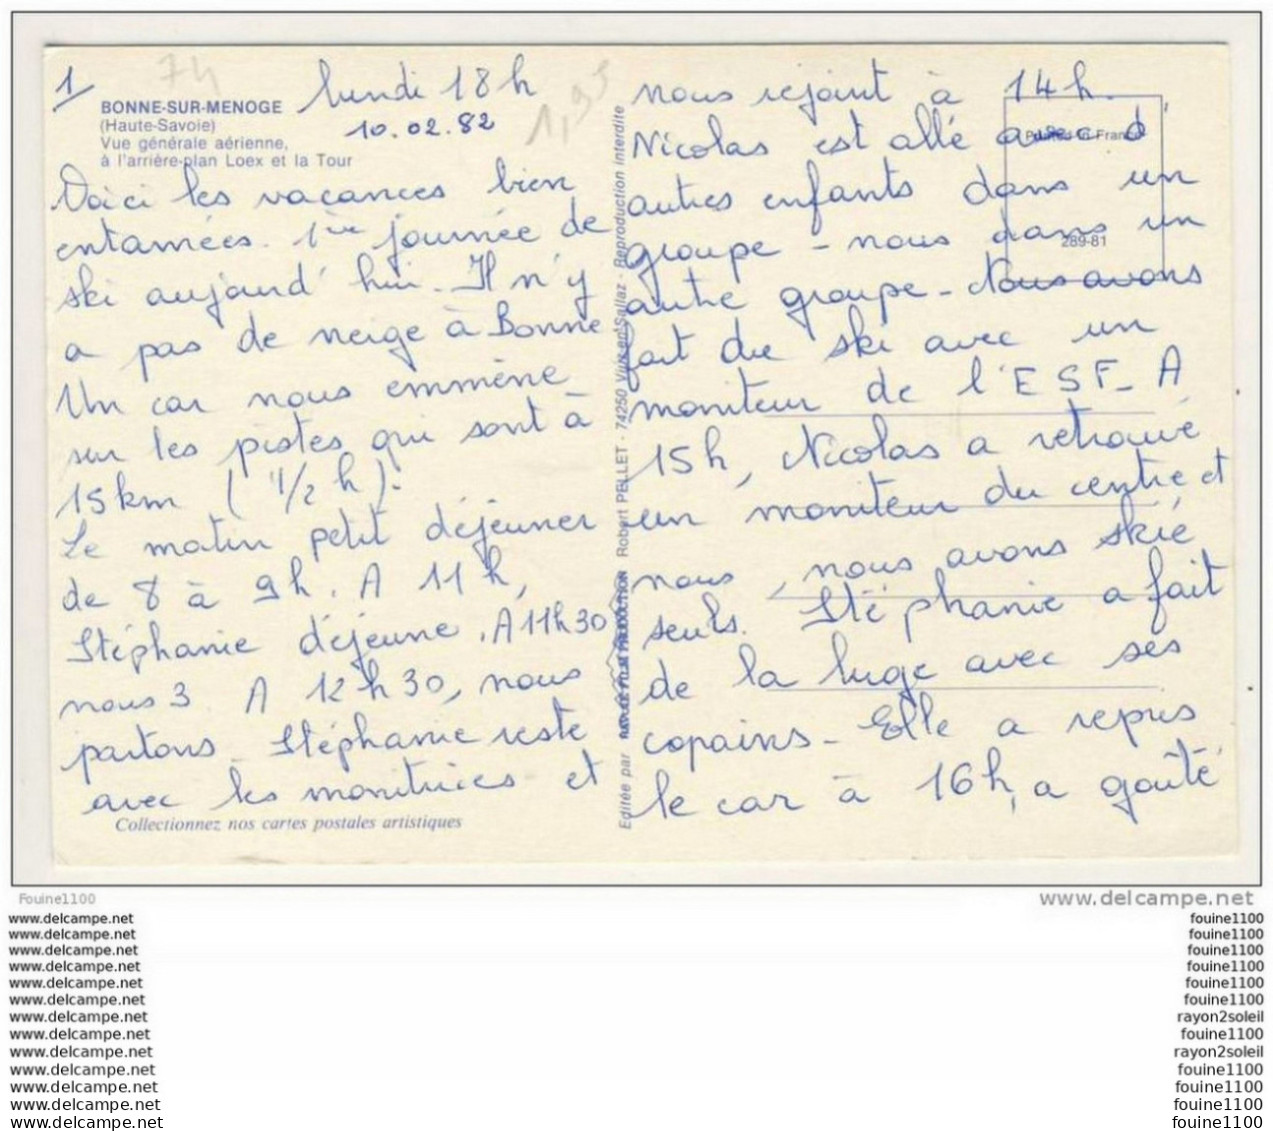 1/
74
BONNE-SUR-MENOGE
(Haute-Savoie)
Vue générale aérienne,
à l'arrière-plan Loex et la Tour
lundi 18h
10.02.82
1,95
Voici les vacances bien
entamées. 1ère journée de
ski aujourd'hui. Il n'y
a pas de neige à Bonne
Un car nous emmène
sur les pistes qui sont à
15km (1/2 h).
Le matin petit déjeuner
de 8 à 9h. A 11h,
Stéphanie déjeune. A 11h30
nous 3 A 12h30, nous
partons. Stéphanie reste
avec les monitrices et
Collectionnez nos cartes postales artistiques
Editée par
Robert PELLET - 74250 Viuz-en-Sallaz - Reproduction interdite
Printed in France
289-81
nous rejoint à 14h.
Nicolas est allé avec d'
autres enfants dans un
groupe - nous dans un
autre groupe - Nous avons
fait du ski avec un
moniteur de l'ESF - A
15h, Nicolas a retrouvé
un moniteur du centre et
nous, nous avons skié
seuls. Stéphanie a fait
de la luge avec ses
copains - Elle a repris
le car à 16h, a goûté
Fouine1100
www.delcampe.net
www.delcampe.net
www.delcampe.net
www.delcampe.net
www.delcampe.net
www.delcampe.net
www.delcampe.net
www.delcampe.net
www.delcampe.net
www.delcampe.net
www.delcampe.net
www.delcampe.net
www.delcampe.net
www.delcampe.net
fouine1100
fouine1100
fouine1100
fouine1100
fouine1100
fouine1100
rayon2soleil
fouine1100
rayon2soleil
fouine1100
fouine1100
fouine1100
fouine1100